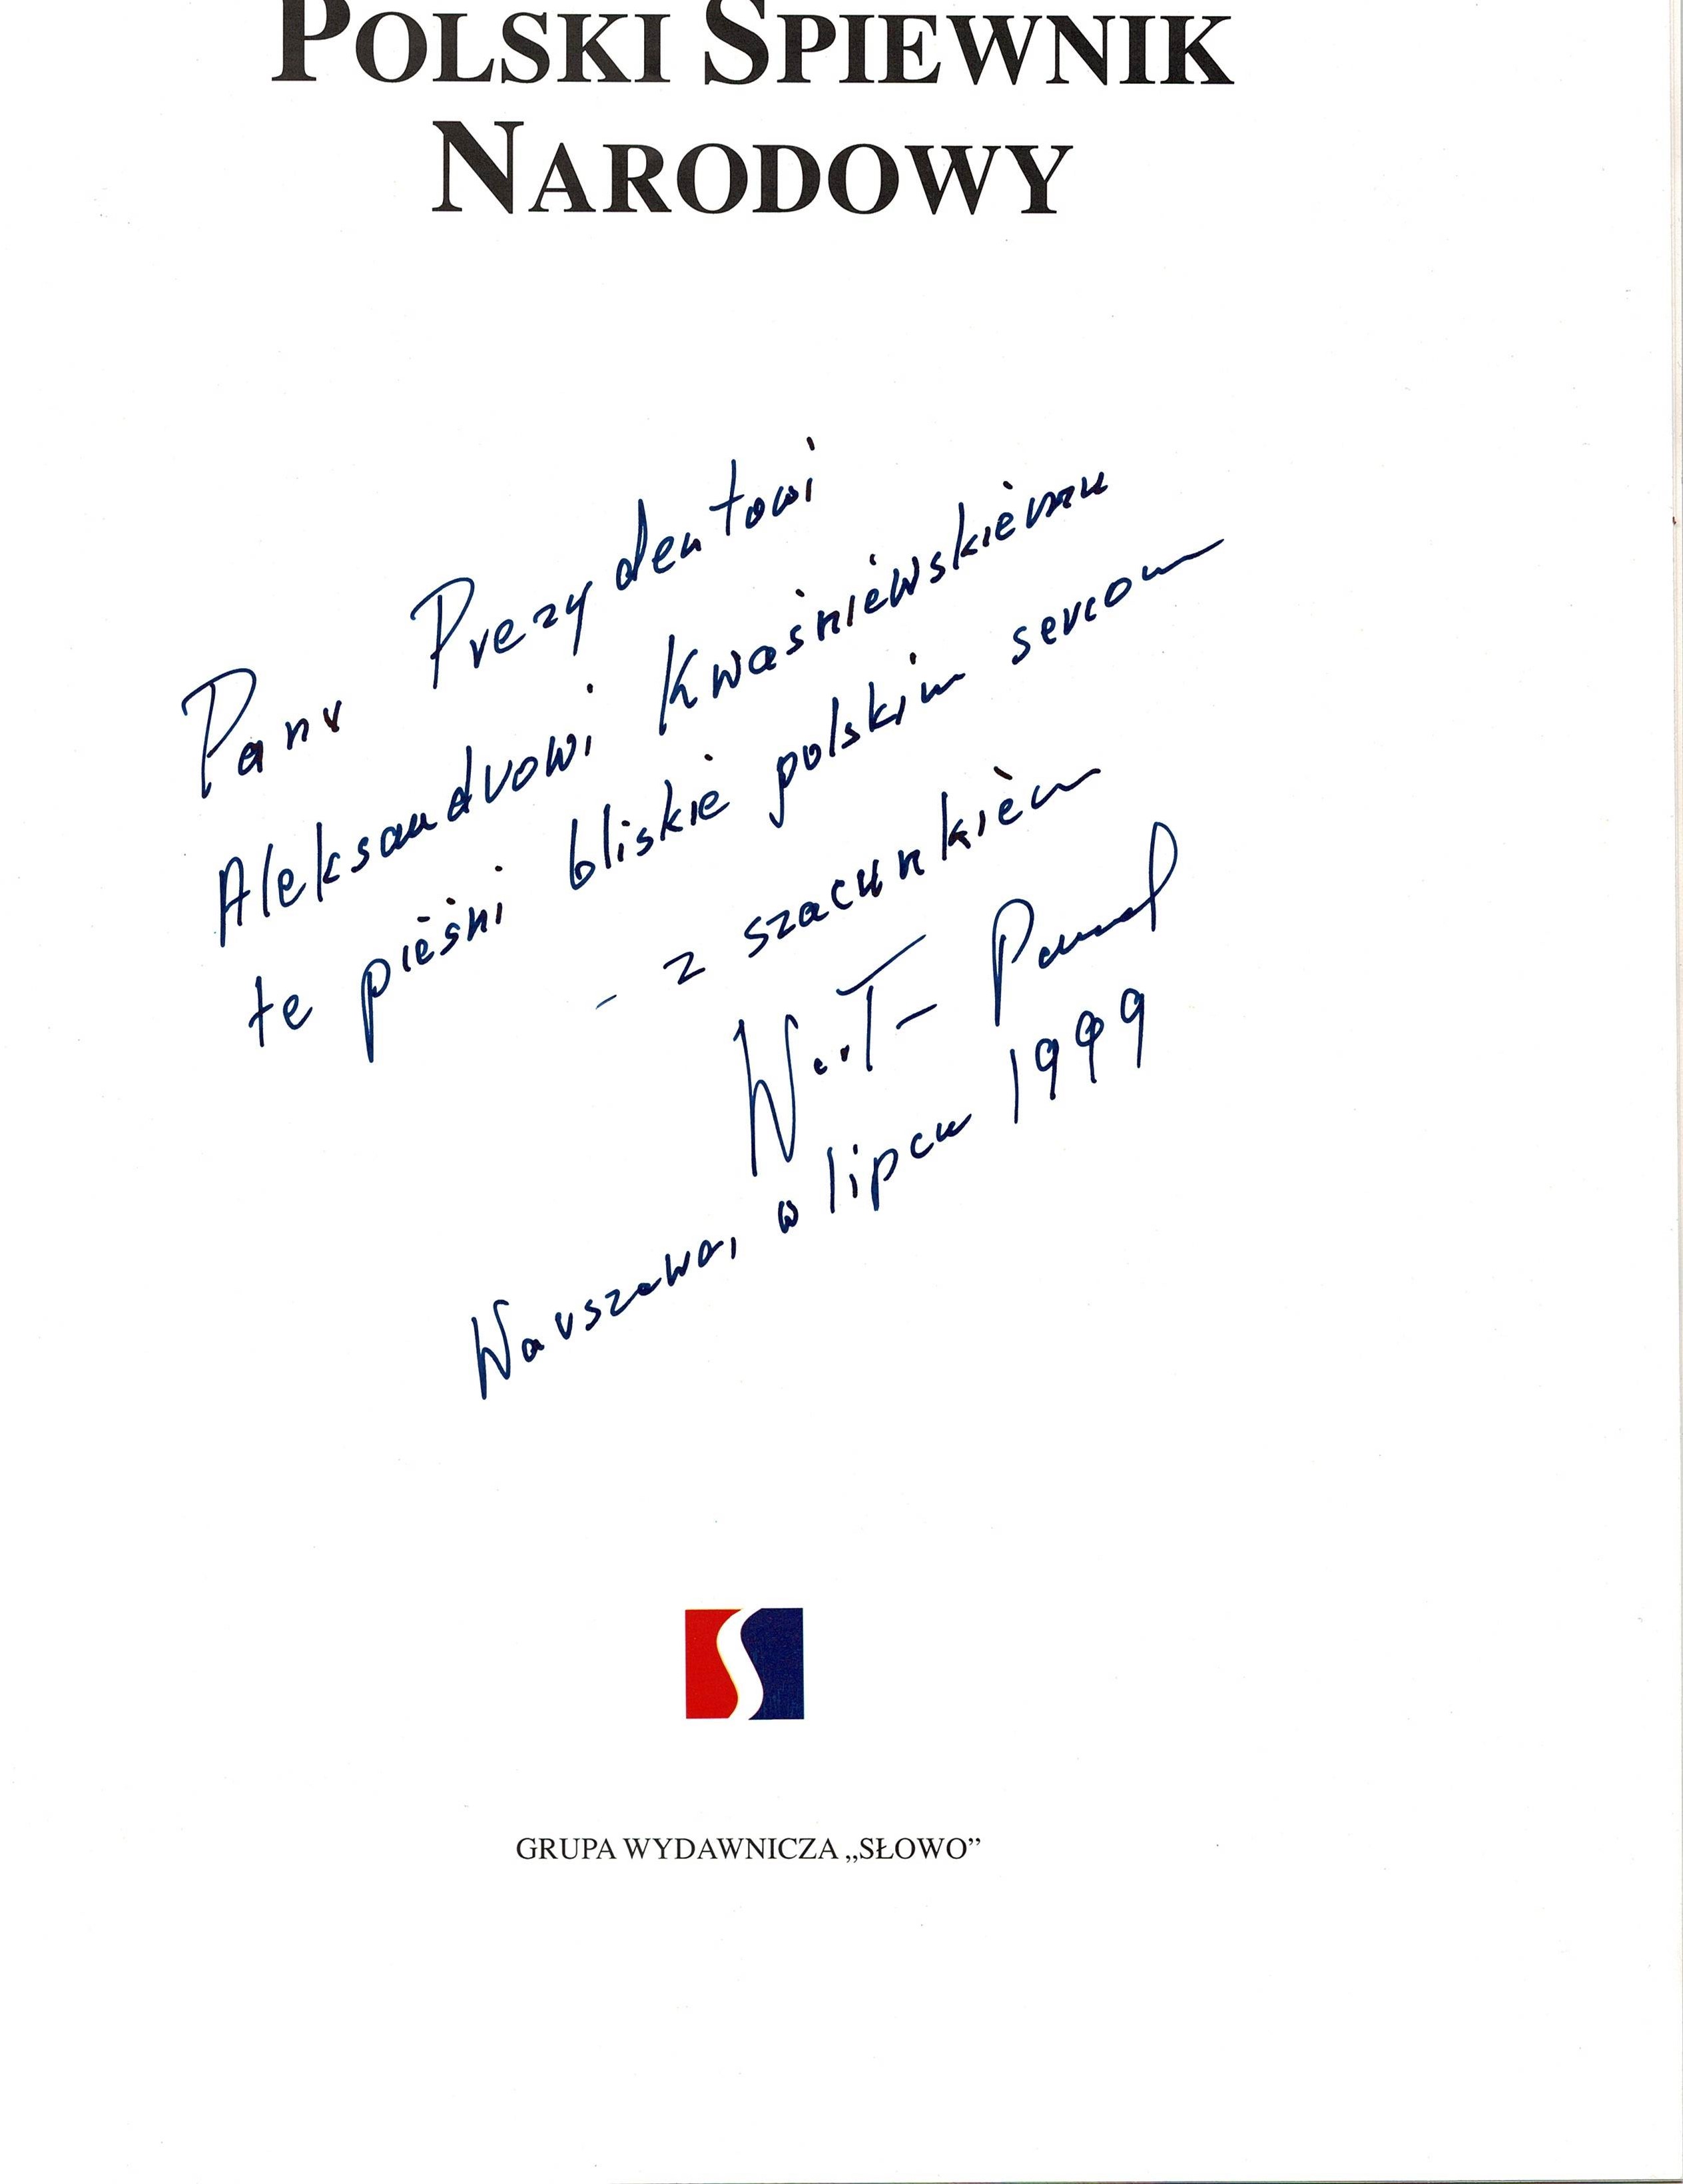 POLSKI ŚPIEWNIK
NARODOWY
Panu Prezydentowi
Aleksandrowi Kwaśniewskiemu
te pieśni bliskie polskim sercom
- z szacunkiem
Warszawa, w lipcu 1999
GRUPA WYDAWNICZA „SŁOWO”